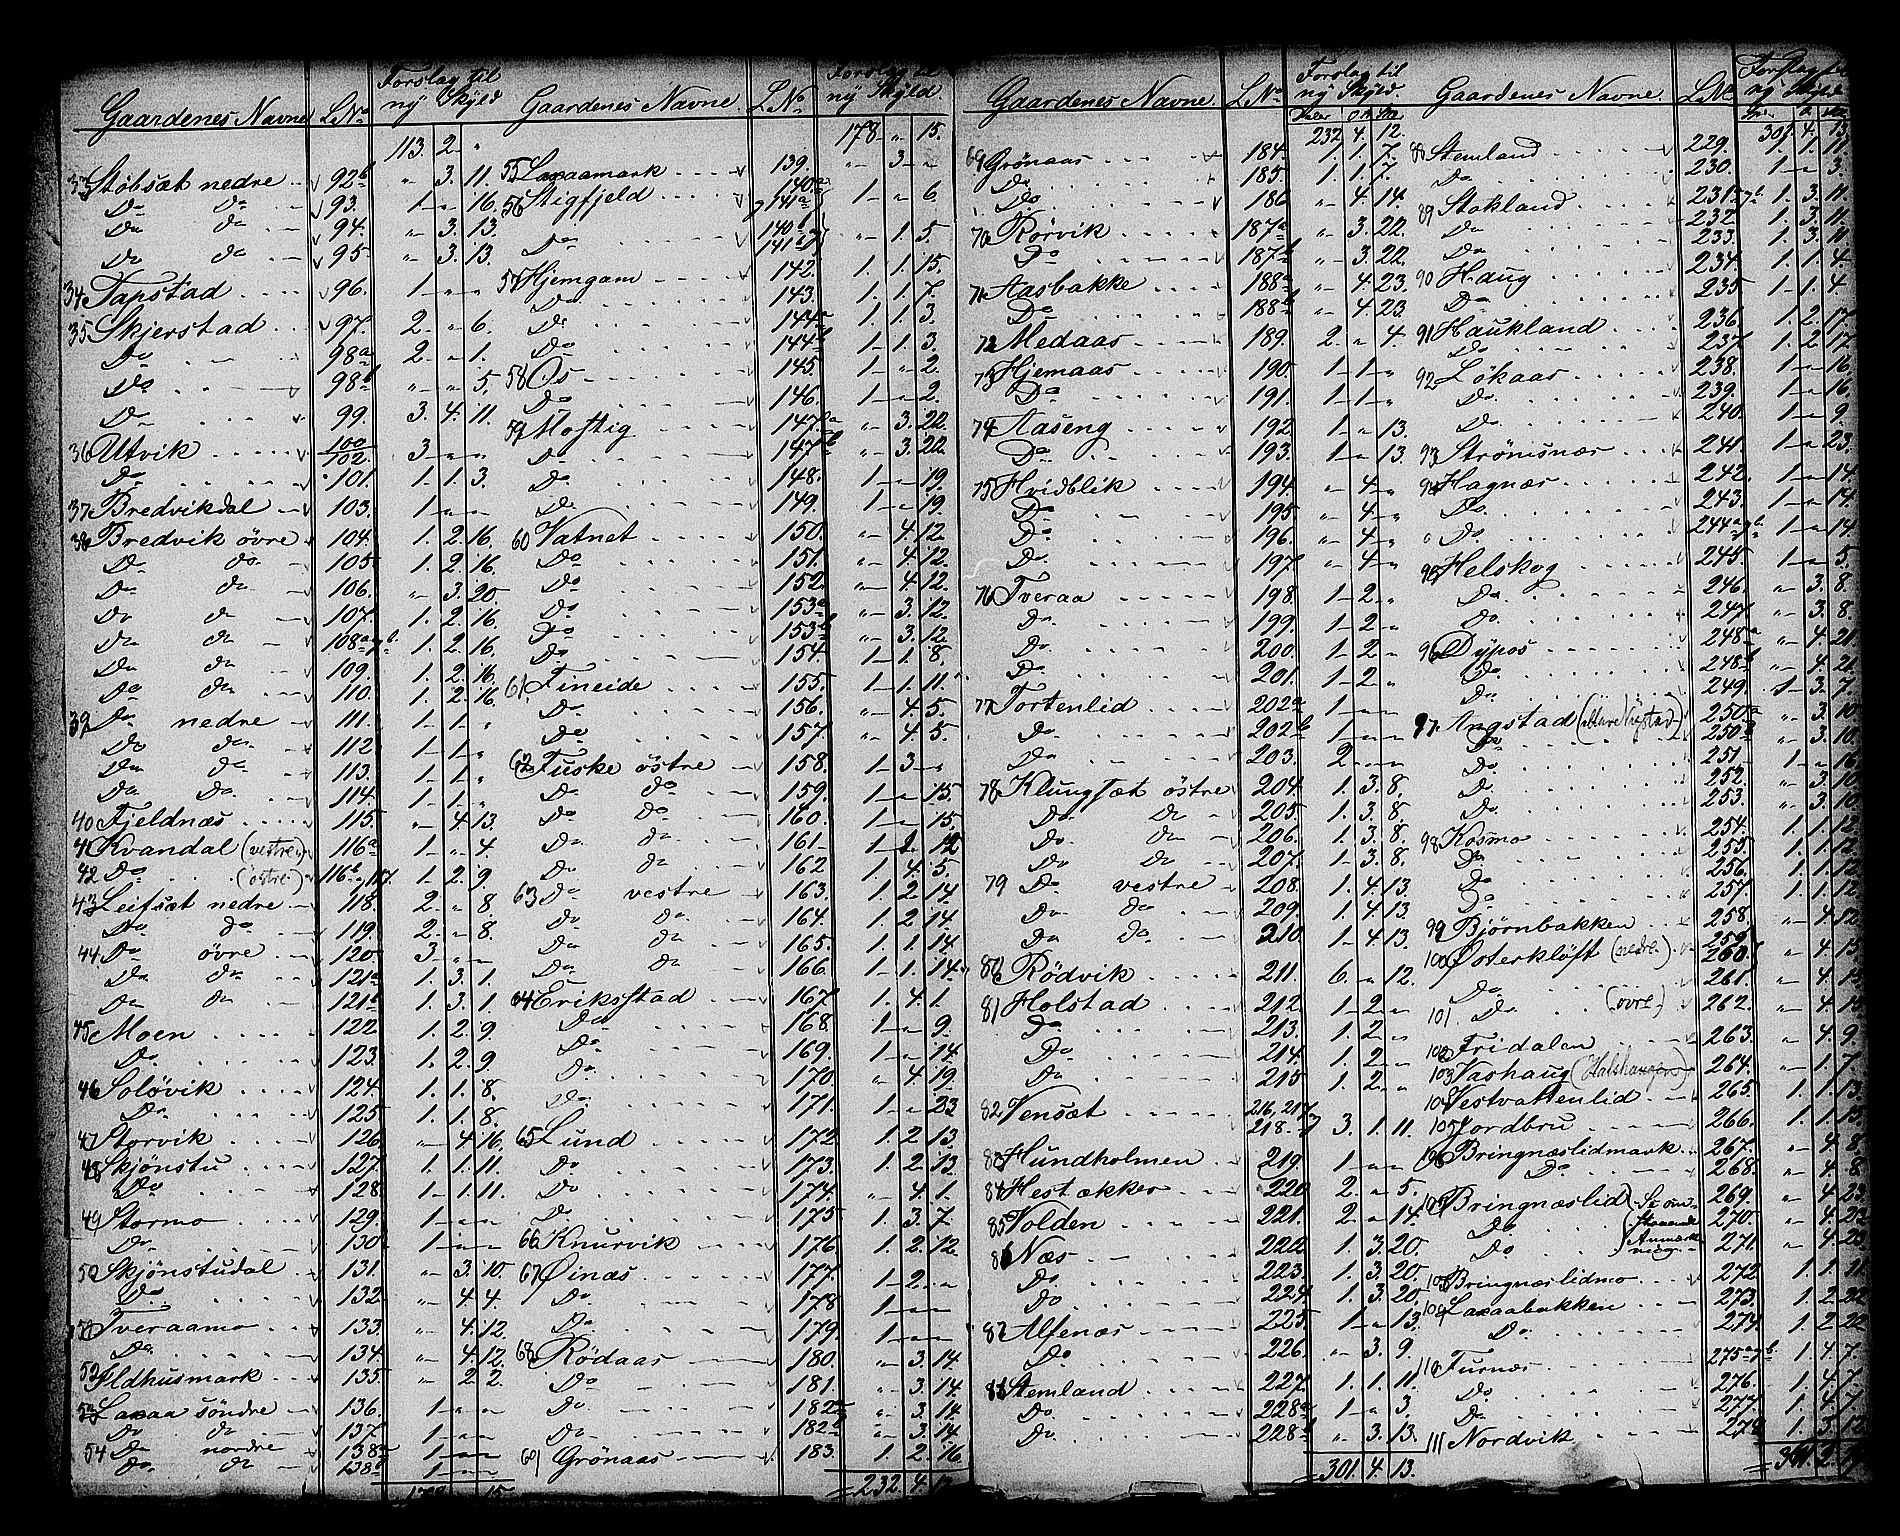 Gaardenes Navne LNo Forslag til ny Skyld
113. 2 "
33 Støbsæt nedre 92b " 3. 11.
Do Do 93. 1 " 16.
Do Do 94. " 3. 13.
Do Do 95. " 3. 13.
34 Tapstad 96. 1 " "
35 Skjerstad 97. 2 " 6.
Do 98a 2 " 1.
Do 98b " " 5.
Do 99. 3. 4. 11.
36 Utvik 100/102. 3 " "
Do 101. 1 1. 3.
37 Bredvikdal 103. 1 " "
38 Bredvik övre 104. 1. 2. 16.
Do do 105. 1. 2. 16.
Do do 106. " 3. 20.
Do do 107. 1. 2. 16.
Do do 108a,b. 1. 2. 16.
Do do 109. 1. 2. 16.
Do do 110. 1. 2. 16.
39 Do nedre 111. 1 1. "
Do do 112. 1 1. "
Do do 113. 1 1. "
Do Do 114. 1 1. "
40 Fjeldnæs 115. " 4. 13.
41 Kvandal (vestre) 116a 1 " 4.
42 Do (östre) 116b, 117. 1 2. 9.
43 Leifsæt nedre 118. 2. " 8.
Do do 119. 2 " 8.
44 Do övre 120. 3 " "
Do do 121a 1. 3. 1.
Do do 121b 1. 3. 1.
45 Moen 122. 1. 2. 9.
Do 123. 1. 2. 9.
46 Solövik 124. 1. 1. 8.
Do 125. 1. 1. 8.
47 Storvik 126. " 4. 16.
48 Skjönstu 127. 1. 1. 11.
Do 128. 1 1. 11.
49 Stormo 129. 1 " "
Do 130. 1 " "
50 Skjönstudal 131. " 3. 10.
Do 132. " 4. 4.
51 Tveraamo 133. " 4. 12.
Do 134. " 4. 12.
52 Ildhusmark 135. " 2. 2.
53 Laxaa söndre 136. 1 " "
Do do 137. 1 " "
54 Do nordre 138a 1 " "
Do do 138b 1 " "
178 " 15.
Gaardenes Navne. LNo Forslag til ny Skyld.
178 " 15.
55 Laxaamark 139. " 3 "
56 Stigfjeld 140a 141a 1 " 6.
Do 140b 141b " 1. 5.
57 Hjemgam 142. 1. 1. 15.
Do 143. 1. 1. 7.
Do 144a 1. 1. 3.
Do 144b 1 1. 3.
58 Os 145. 1 " 2.
Do 146. 1 " 2.
59 Moftig 147a " 3. 22.
Do 147b " 3. 22.
Do 148. 1 " 19.
Do 149. 1 " 19.
60 Vatnet 150. " 4. 12.
Do 151. " 4. 12.
Do 152. " 4. 12.
Do 153a " 3. 12.
Do 153b " 3. 12.
Do 154. 1 1. 8.
61 Fineide 155. 1 1. 11.
Do 156. " 4. 5.
Do 157. " 4. 5.
62 Fuske östre 158. 1 3 "
Do do 159. 1 " 15.
Do do 160. 1 " 15.
Do do 161. 1 12.
Do do 162. 1. 4. 5.
63 Do vestre 163. 1. 2. 14.
Do do 164. 1. 2. 14.
Do do 165. 1. 1. 14.
Do do 166. 1 1. 14.
64 Eriksstad 167. 1. 4. 1.
Do 168. 1 " 9.
Do 169. 1 " 14.
Do 170. " 4. 19.
Do 171. 1 " 23.
65 Lund 172. 1. 2. 13.
Do 173. 1. 2. 13.
Do 174. " 4. 1.
Do 175. 1. 3. 7.
66 Knurvik 176. 1. 2. 12.
67 Öinæs 177. 1 2. "
Do 178. 1 " "
Do 179. 1 " "
68 Rödaas 180. " 3. 14.
Do 181. " 3. 14.
Do 182a " 3. 14.
Do 182b " 3. 14.
69 Grönaas 183. 1. 2. 16.
232. 4. 12.
Gaardenes Navne. LNo Forslag til ny Skyld.
232. 4. 12.
69 Grönaas 184. 1. 1. 7.
Do 185. 1. 1. 7.
Do 186. " 4. 14.
70 Rörvik 187a " 3. 22.
Do 187b " 3. 22.
71 Aasbakke 188a " 4. 23.
Do 188b " 4. 23.
72 Medaas 189. 2 " 4.
73 Hjemaas 190. 1 1 "
Do 191. 1 1 "
74 Aaseng 192. 1 " 13.
Do 193. 1 " 13.
75 Hvidblik 194. " 4 "
Do 195. " 4 "
Do 196. " 4 "
Do 197. " 4 "
76 Tveraa 198. 1 2. "
Do 199. 1 2 "
Do 200. 1 2 "
Do 201. 1 2 "
77 Tortenlid 202a 1 " "
Do 202b 1 " "
Do 203. 2 " "
78 Klungsæt östre 204. 1. 3. 8.
Do do 205. 1. 3. 8.
Do do 206. 1. 3. 8.
Do do 207. 1 3. 8.
79 Do vestre 208. 1. 4. 13.
Do do 209. 1. 4. 13.
Do do 210. 1 4. 13.
80 Rödvik 211. 6 " 12.
81 Holstad 212. 1 2 "
Do 213. 1. 2 "
Do 214. 1. 2 "
Do 215. 1. 2 "
82 Vensæt 216, 217, 218. 3. 1. 11.
83 Hundholmen 219. 1 " "
84 Hestækker 220. 2. " 5.
85 Volden 221. 2 " 14.
86 Næs 222. 1. 3. 20.
Do 223. 1. 3. 20.
Do 224. 1. 3. 20.
87 Alfenæs 225. 1 " 13.
Do 226. " 3. 9.
88 Stemland 227. 1. 1. 11.
Do 228a 1 " 3.
Do 228b " 3. 13.
301. 4. 13.
Gaardenes Navne. LNo Forslag til ny Skyld
301. 4. 13.
88 Stemland 229. 1. 11.
Do 230. 1 " 3.
89 Stokland 231a,b. 1. 3. 11.
Do 232. 1. 3. 11.
Do 233. 1. 3. 11.
90 Haug 234. 1. 1. 4.
Do 235. 1 1. 4.
91 Haukland 236. 1. 2. 17.
Do 237. 1. 2. 17.
92 Lökaas 238. 1 " 16.
Do. 239. 1 " 16.
Do. 240. 1 " 9.
93 Strömsnæs 241. 1 " 23.
94 Hagnæs 242. 1 " 14.
Do. 243. 1 " 14.
" Do. 244a,b. 1 " 14.
95 Helskog 245. 1 " 5.
Do. 246. " 3. 8.
Do. 247. " 3. 8.
96 Dypos 248a " 4. 21.
Do. 248b " 4. 21.
Do. 249. 1 3. 7.
97. Angstad 250a " 3. 10.
Do 250b " 3. 10.
Do 251. 1 " 16.
Do. 252. " 3. 10.
Do. 253. " 3. 10.
98 Kosmo 254. 1. 1. 12.
Do 255. 1. 1. 12.
Do 256. 1. 1. 12.
Do 257. 1. 1. 12.
99 Bjørnbakken 258. " 4. 12.
100 Østerkløft (nedre.) 259. 260. " 4. 15.
Do 261. " 4. 15.
101. Do (övre.) 262. " 4. 15.
102 Fridalen 263. " 4. 9.
103 Vashaug 264. " 1. 7.
104 Vestvattenlid 265. 1. 1. 13.
105 Jordbru 266. 1. 1. 15.
106 Bringnæslidmark 267. " 4. 8.
Do 268. " 4. 8.
107 Bringnæslid Se om- 269. " 4. 23.
Do staaende 270. " 4. 23.
Do Anmærk ning 271. " 4. 23.
108 Bringnæslidmo 272. 1. 1. 11.
109 Laxaabakken 273. 1. 2. 22.
Do 274. 1. 2. 22.
110 Furnæs 275a,b. 1. 4. 7.
Do 276. 1. 4. 7.
Do 277. 1. 4. 7.
111 Nordvik 278. 1. 3. 12.